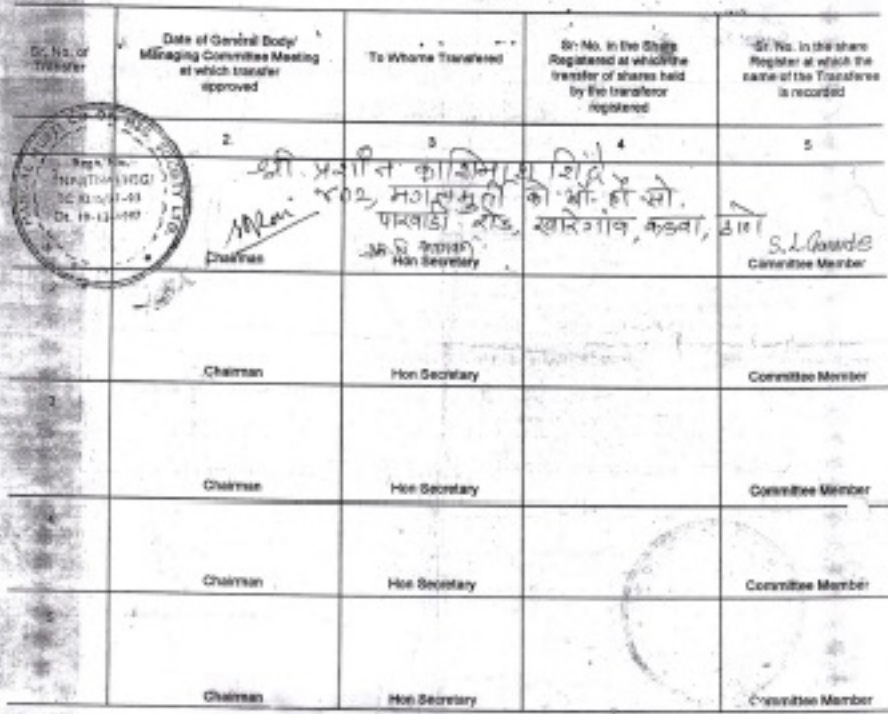 Sr. No. of Transfer
Date of General Body/
Managing Committee Meeting
at which transfer
approved
To Whome Transfered
Sr. No. in the Share
Registered at which the
transfer of shares held
by the transferor
registered
Sr. No. in the share
Register at which the
name of the Transferee
is recorded
2 3 4 5
श्री. प्रशांत काशिनाथ शिंदे
४०२, मंगलमुर्ती को. ऑ. हौ. सो.
पारवाडी रोड, खारेगांव, कळवा, ठाणे
S. L. Gawde
Chairman Hon Secretary Committee Member
Chairman Hon Secretary Committee Member
3
Chairman Hon Secretary Committee Member
4
Chairman Hon Secretary Committee Member
5
Chairman Hon Secretary Committee Member